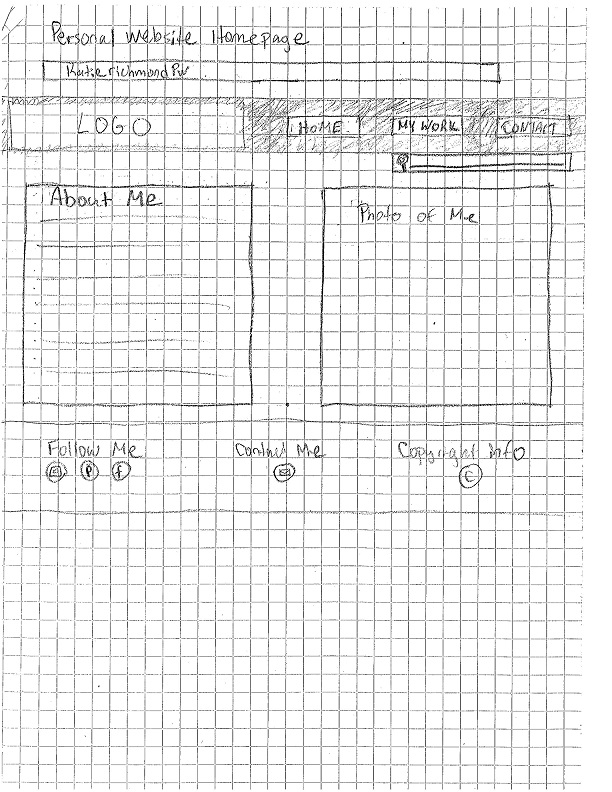 Personal Website Homepage
KatierichmondPW
LOGO
HOME
MY WORK
CONTACT
About Me
Photo of Me
Follow Me
Contact Me
Copyright Info
P f
C